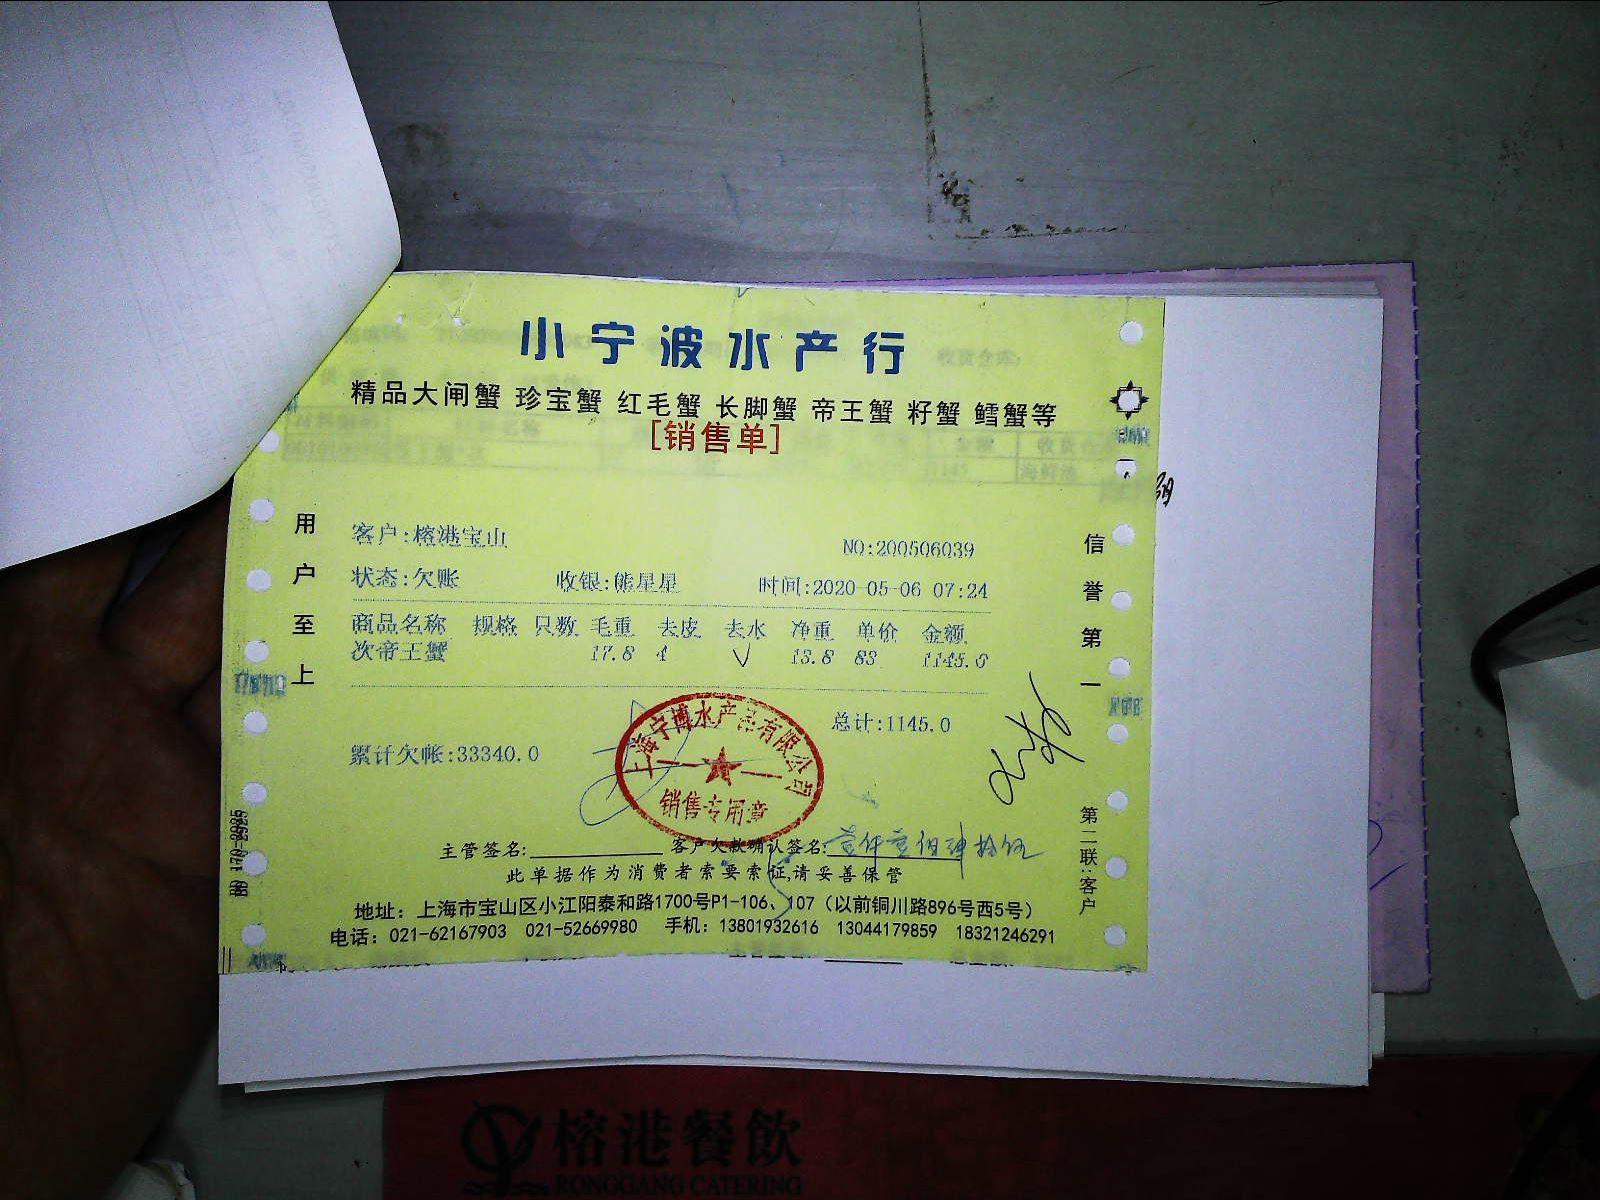 小宁波水产行
精品大闸蟹 珍宝蟹 红毛蟹 长脚蟹 帝王蟹 籽蟹 鳕蟹等
[销售单]
用户至上
信誉第一
客户:榕港宝山
NO:200506039
状态:欠账 收银:熊星星 时间:2020-05-06 07:24
商品名称 规格 只数 毛重 去皮 去水 净重 单价 金额
次帝王蟹 17.8 4 √ 13.8 83 1145.0
总计:1145.0
累计欠帐:33340.0
上海宁博水产品有限公司
销售专用章
第二联:客户
主管签名: 客户欠款确认签名:壹仟壹佰肆拾伍
此单据作为消费者索要索证,请妥善保管
地址：上海市宝山区小江阳泰和路1700号P1-106、107（以前铜川路896号西5号）
电话：021-62167903 021-52669980 手机：13801932616 13044179859 18321246291
榕港餐飲
RONGGANG CATERING